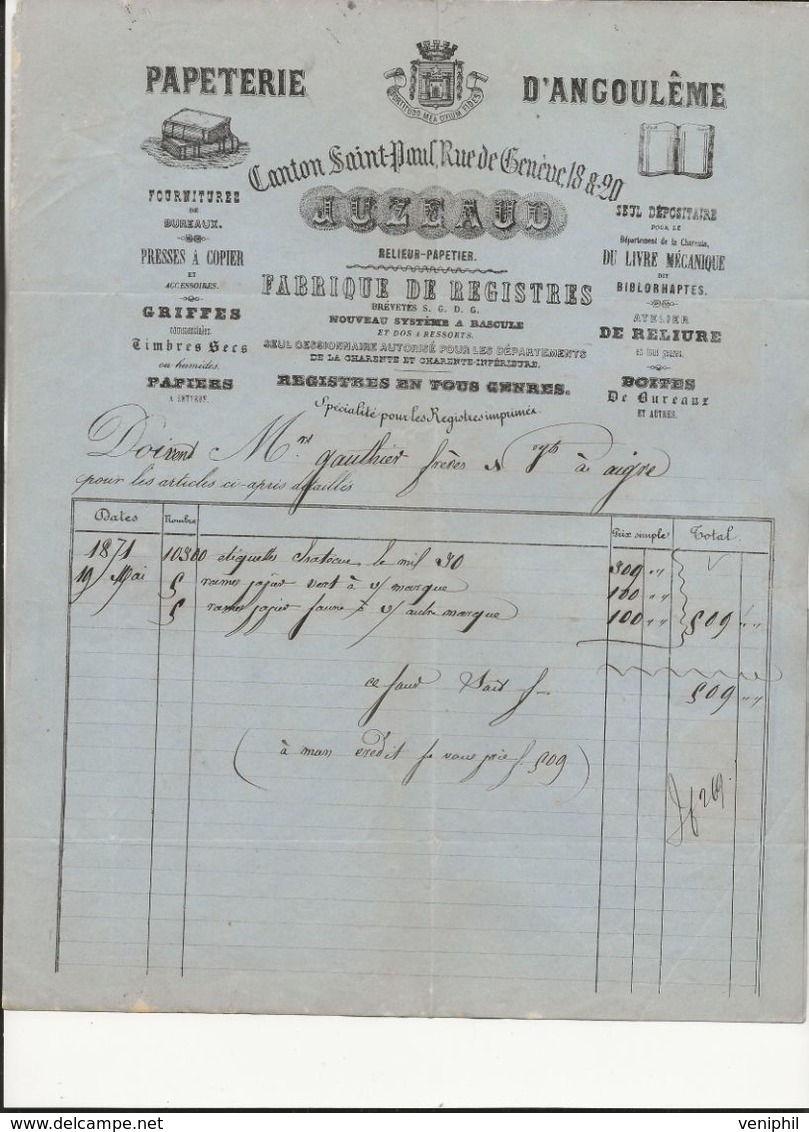 PAPETERIE D'ANGOULÊME
FORTITUDO MEA CIVIUM FIDES
Canton Saint-Paul, Rue de Genève, 18 & 20
JUZEAUD
RELIEUR-PAPETIER.
FABRIQUE DE REGISTRES
BREVETÉS S. G. D. G.
NOUVEAU SYSTÈME A BASCULE
ET DOS A RESSORTS.
SEUL CESSIONNAIRE AUTORISÉ POUR LES DÉPARTEMENTS
DE LA CHARENTE ET CHARENTE-INFÉRIEURE.
REGISTRES EN TOUS GENRES.
Spécialité pour les Registres imprimés.
FOURNITURES
DE
BUREAUX.
PRESSES À COPIER
ET
ACCESSOIRES.
GRIFFES
commerciales.
Timbres Secs
ou humides.
PAPIERS
A LETTRES.
SEUL DÉPOSITAIRE
POUR LE
Département de la Charente,
DU LIVRE MÉCANIQUE
DIT
BIBLORHAPTES.
ATELIER
DE RELIURE
en tous genres.
BOITES
De Bureaux
ET AUTRES.
Doivent Mrs gauthier frères & à aigre
pour les articles ci-après détaillés
Dates Nombre Prix simple Total
1871 10300 étiquettes le mil 30 309 " "
19 Mai 5 rames papier vert à v/ marque 100 " "
5 rames papier jaune v/ autre marque 100 " " 509 " "
509 " "
( à mon crédit je vous prie f. 509 )
269
veniphil